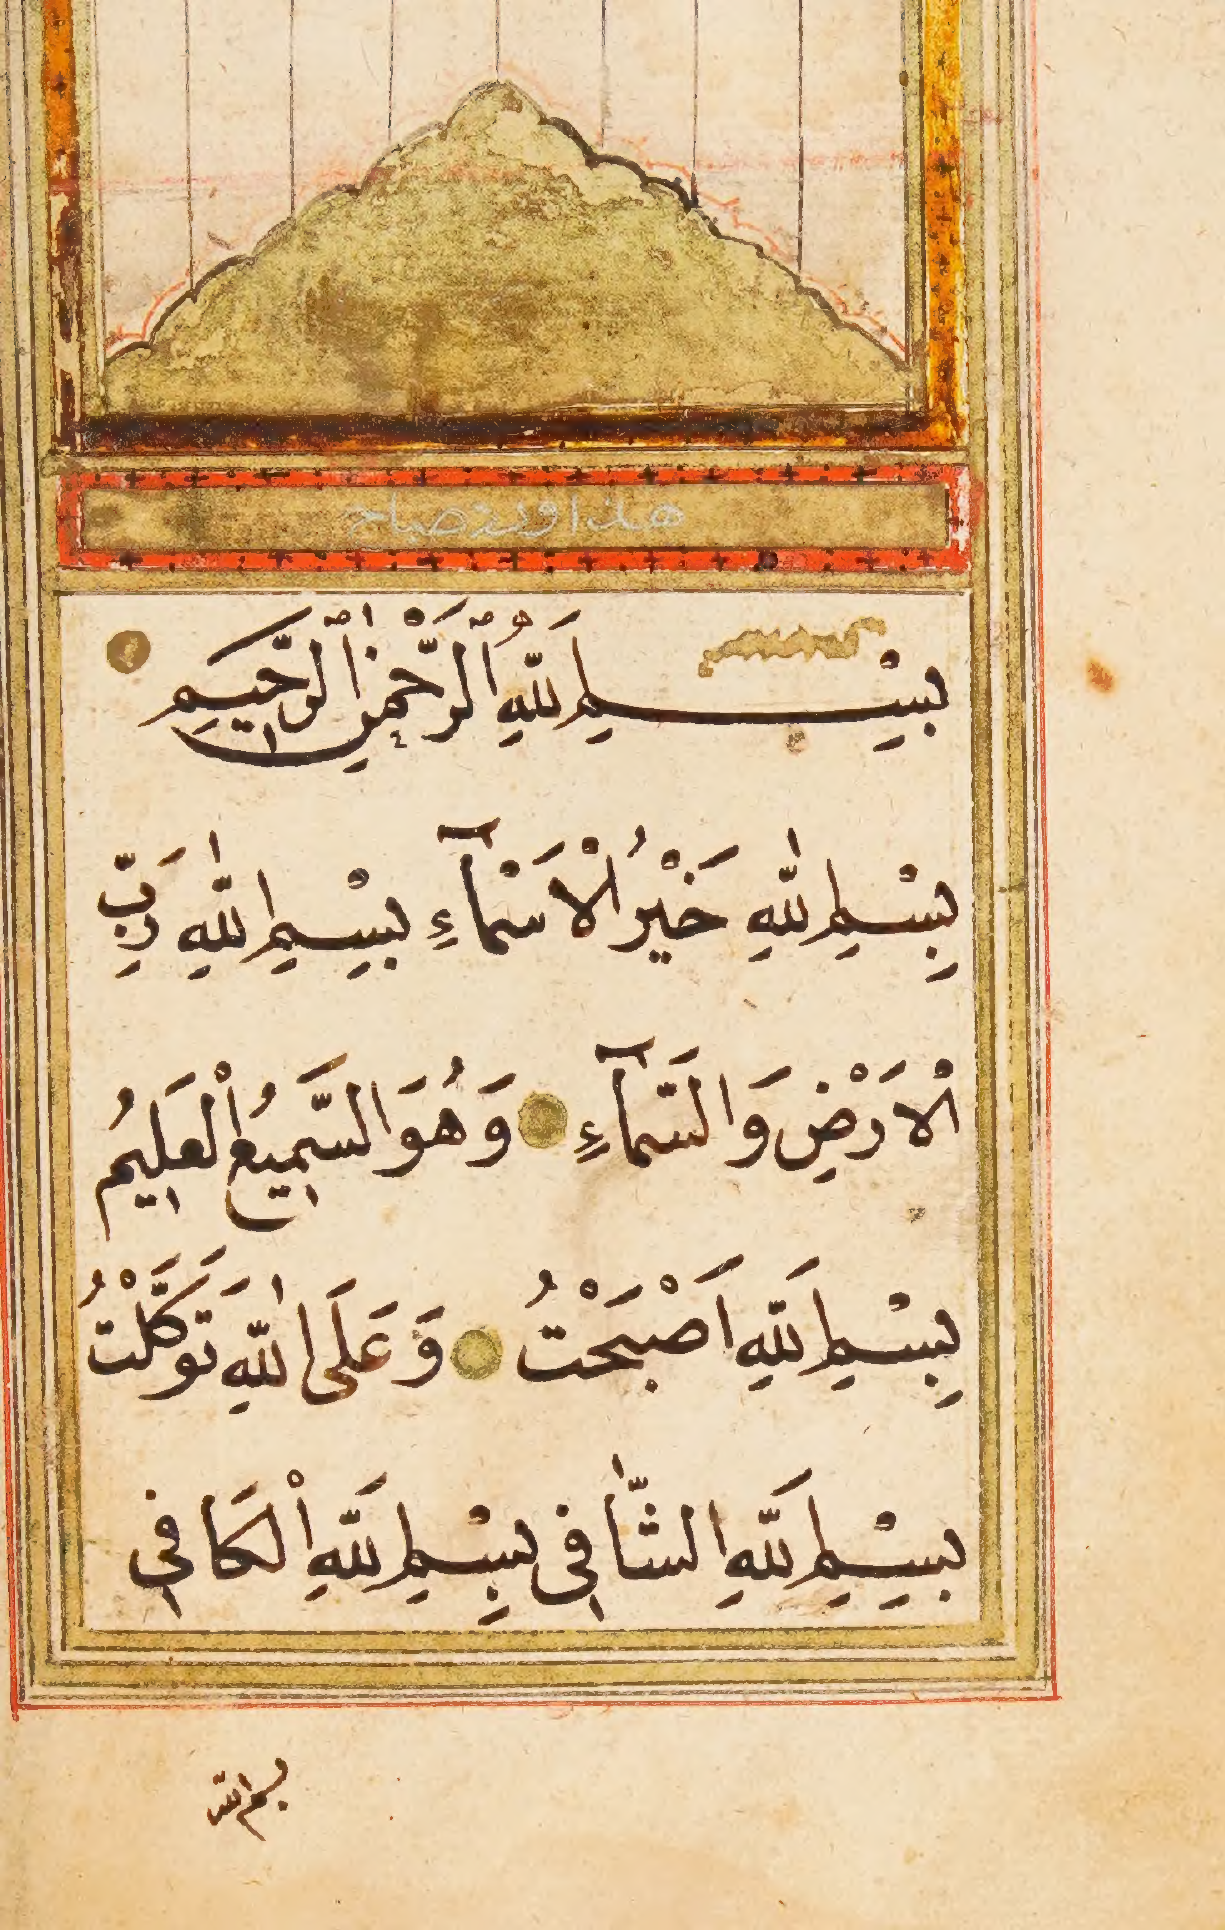 هذا اورد صباح
بِسْــــمِ اللّٰهِ الرَّحْمٰنِ الرَّحِيمِ
بِسْمِ اللّٰهِ خَيْرُ الْاَسْمَآءِ بِسْمِ اللّٰهِ رَبِّ
الْاَرْضِ وَالسَّمَآءِ وَهُوَ السَّمِيعُ الْعَلِيمُ
بِسْمِ اللّٰهِ اَصْبَحْتُ وَعَلَى اللّٰهِ تَوَكَّلْتُ
بِسْمِ اللّٰهِ الشَّافِي بِسْمِ اللّٰهِ الْكَافِي
بسم الله